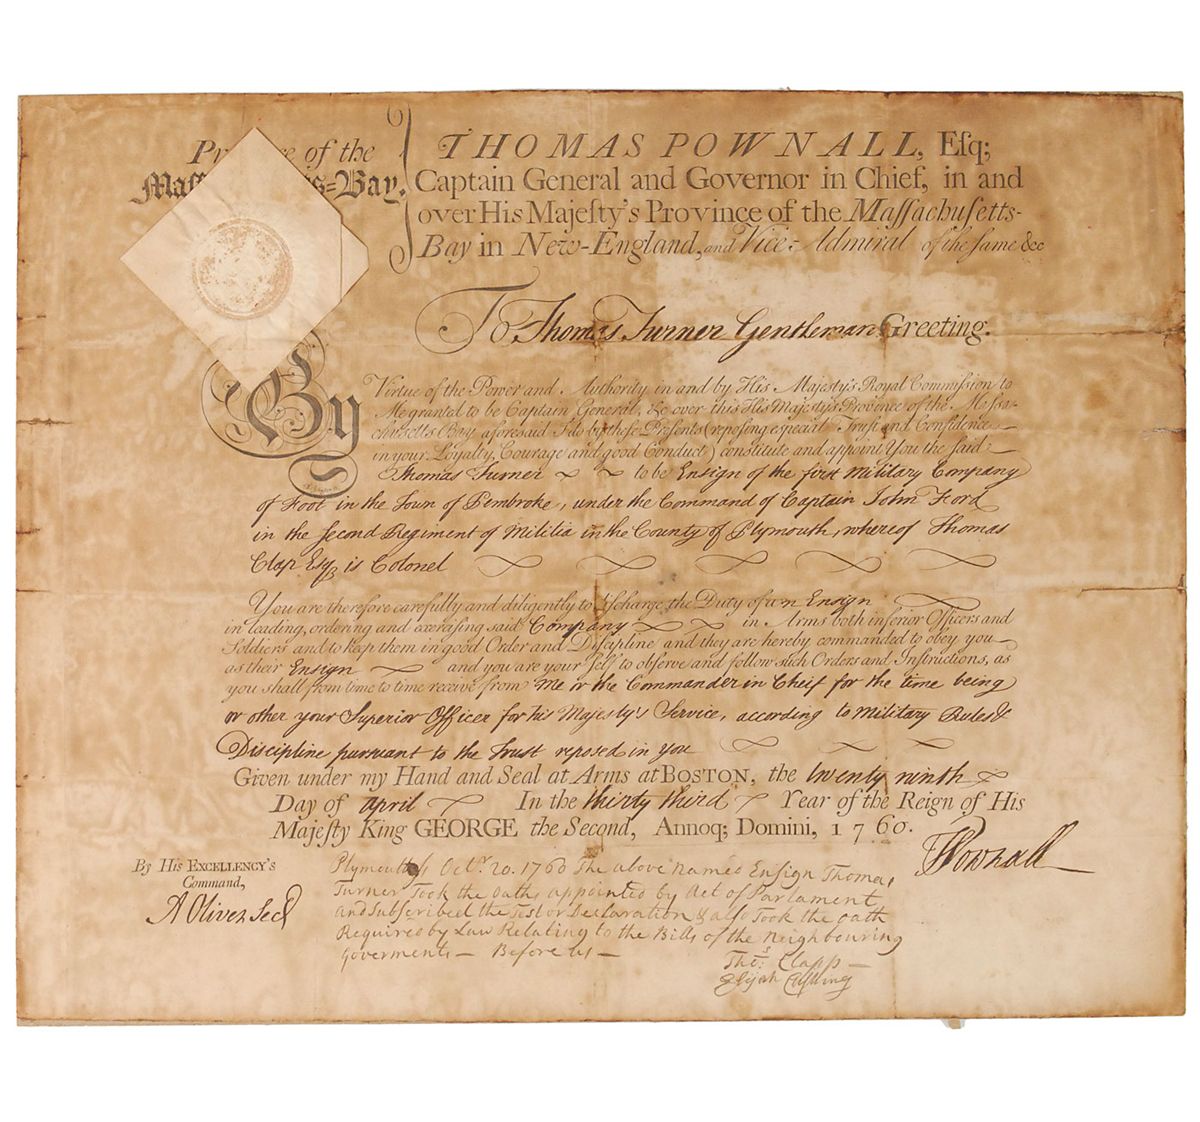 Province of the
Massachusetts=Bay.
THOMAS POWNALL, Eſq;
Captain General and Governor in Chief, in and
over His Majeſty's Province of the Maſſachuſetts-
Bay in New-England, and Vice-Admiral of the ſame &c
To Thomas Turner Gentleman Greeting.
By Virtue of the Power and Authority in and by His Majesty's Royal Commission to
Me granted to be Captain General, &c over this His Majesty's Province of the Massa-
chusetts Bay aforesaid I do by theſe Preſents (reposing eſpecial Truſt and Confidence
in your Loyalty, Courage and good Conduct) constitute and appoint You the ſaid
Thomas Turner to be Ensign of the first Military Company
of Foot in the Town of Pembroke, under the Command of Captain John Ford
in the Second Regiment of Militia in the County of Plymouth, whereof Thomas
Clap Esqr. is Colonel
You are therefore carefully and diligently to diſcharge the Duty of an Ensign
in leading, ordering and exerciſing said Company in Arms both inferior Officers and
Soldiers and to keep them in good Order and Diſcipline and they are hereby commanded to obey you
as their Ensign and you are your Self to obſerve and follow ſuch Orders and Inſtructions, as
you ſhall from time to time receive from Me or the Commander in Cheif for the time being
or other your Superior Officer for his Majesty's Service, according to Military Rules &
Discipline pursuant to the Trust reposed in you
Given under my Hand and Seal at Arms at BOSTON, the twenty ninth
Day of April In the thirty third Year of the Reign of His
Majeſty King GEORGE the Second, Annoq; Domini, 1760.
TPownall
By His EXCELLENCY'S
Command,
A Oliver Secy
Plymouth ſs Octr. 20. 1760 The above Named Ensign Thomas
Turner Took the oaths appointed by Act of Parlament
and Subscribed the Test or Declaration & also Took the oath
Required by Law Relating to the Bills of the Neighbouring
Goverments — Before us —
Thos: Clapp —
Elijah Cushing